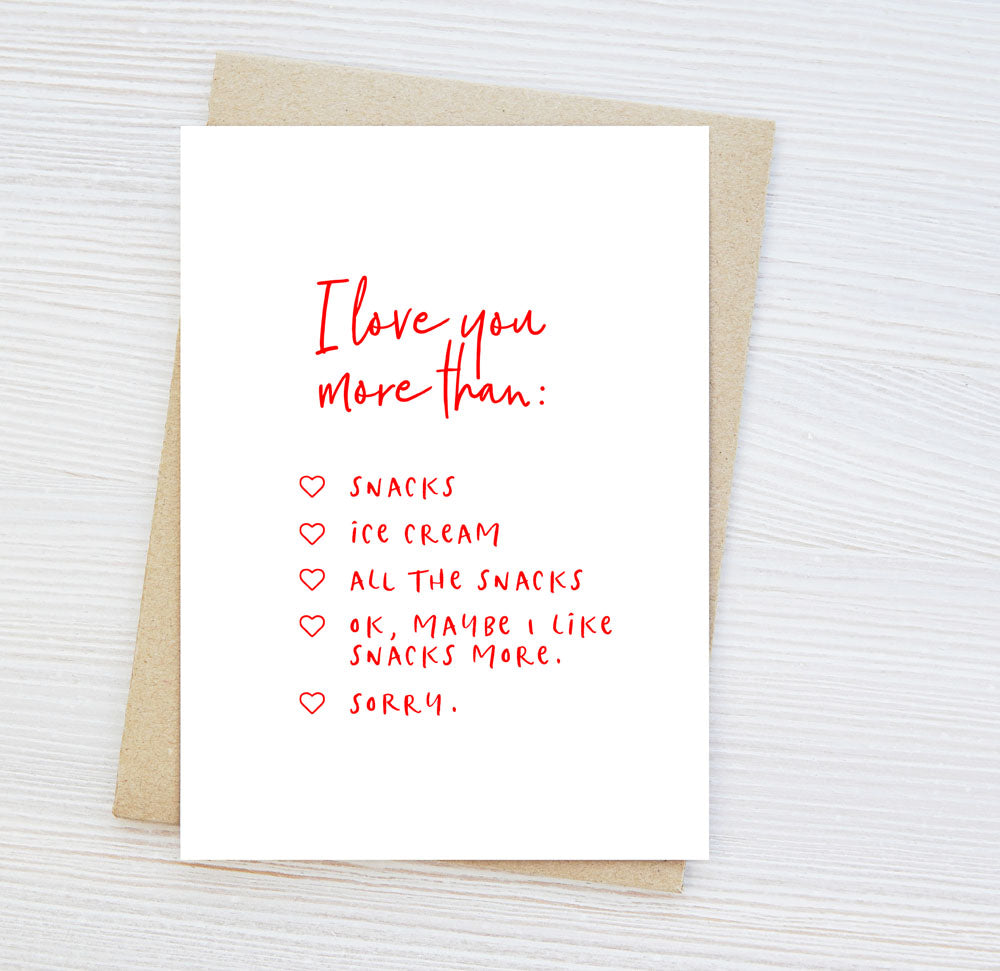 I love you
more than:
SNACKS
ice CREAM
ALL THE SNACKS
OK, MAYBE I LIKE
SNACKS MORE.
SORRY.